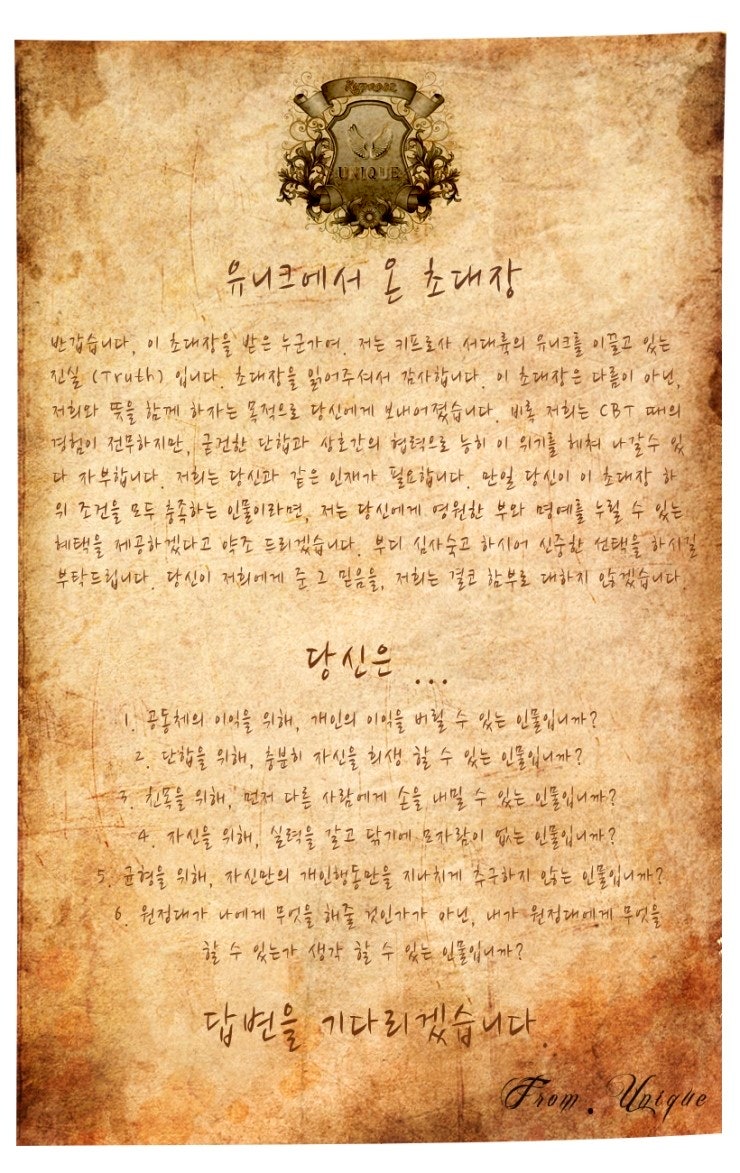 UNIQUE
유니크에서 온 초대장
반갑습니다, 이 초대장을 받은 누군가여. 저는 키프로사 서대륙의 유니크를 이끌고 있는
진실 (Truth) 입니다. 초대장을 읽어주셔서 감사합니다. 이 초대장은 다름이 아닌,
저희와 뜻을 함께 하자는 목적으로 당신에게 보내어졌습니다. 비록 저희는 CBT 때의
경험이 전무하지만, 굳건한 단합과 상호간의 협력으로 능히 이 위기를 헤쳐 나갈수 있
다 자부합니다. 저희는 당신과 같은 인재가 필요합니다. 만일 당신이 이 초대장 하
위 조건을 모두 충족하는 인물이라면, 저는 당신에게 영원한 부와 명예를 누릴 수 있는
혜택을 제공하겠다고 약조 드리겠습니다. 부디 심사숙고 하시어 신중한 선택을 하시길
부탁드립니다. 당신이 저희에게 준 그 믿음을, 저희는 결코 함부로 대하지 않겠습니다.
당신은 ...
1. 공동체의 이익을 위해, 개인의 이익을 버릴 수 있는 인물입니까?
2. 단합을 위해, 충분히 자신을 희생 할 수 있는 인물입니까?
3. 친목을 위해, 먼저 다른 사람에게 손을 내밀 수 있는 인물입니까?
4. 자신을 위해, 실력을 갈고 닦기에 모자람이 없는 인물입니까?
5. 균형을 위해, 자신만의 개인행동만을 지나치게 추구하지 않는 인물입니까?
6. 원정대가 나에게 무엇을 해줄 것인가가 아닌, 내가 원정대에게 무엇을
할 수 있는가 생각 할 수 있는 인물입니까?
답변을 기다리겠습니다.
From. Unique